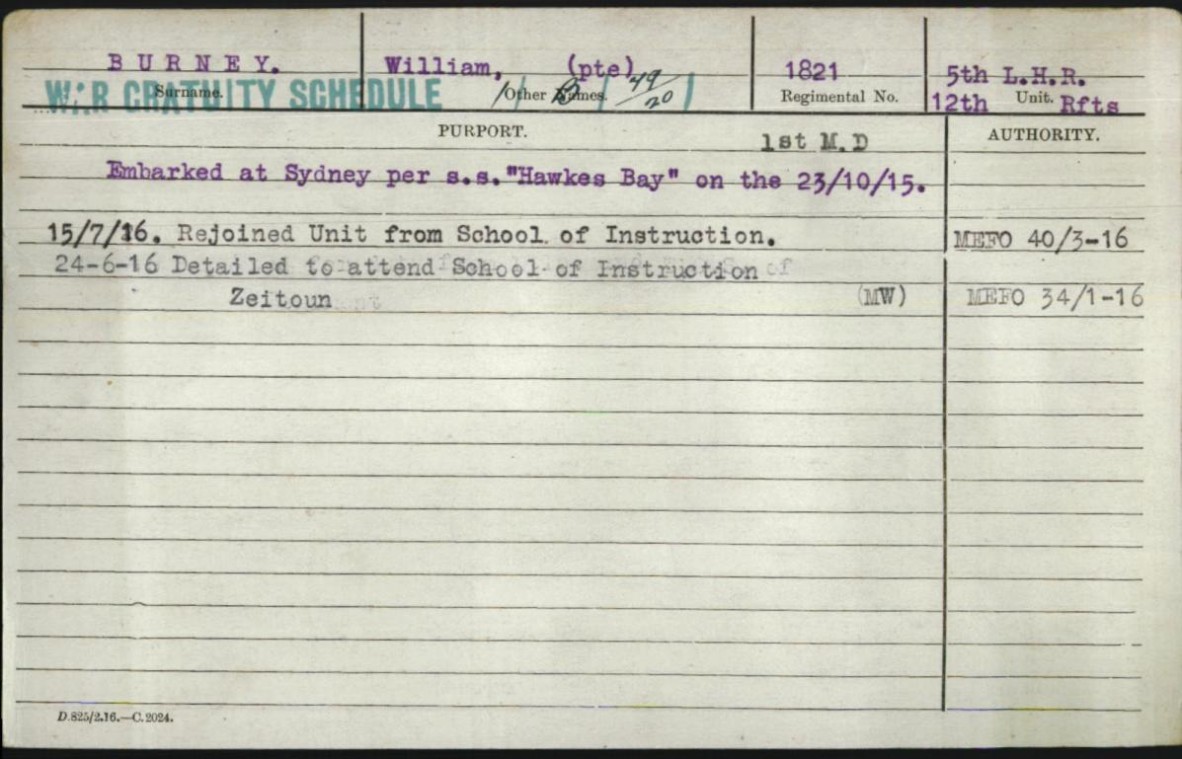 BURNEY. William, (pte) 1821 5th L.H.R.
WAR GRATUITY SCHEDULE 49/20
Surname. Other Names. Regimental No. 12th Unit. Rfts
PURPORT. 1st M.D AUTHORITY.
Embarked at Sydney per s.s."Hawkes Bay" on the 23/10/15.
15/7/16. Rejoined Unit from School of Instruction. MEFO 40/3-16
24-6-16 Detailed to attend School of Instruction
Zeitoun (MW) MEFO 34/1-16
D.825/2.16.—C.2024.